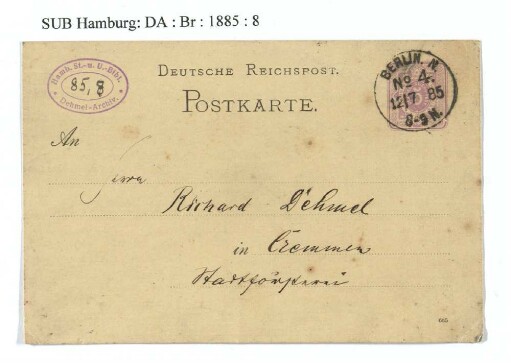 SUB Hamburg: DA : Br : 1885 : 8
Hamb. St.- u. U.-Bibl.
85, 8
Dehmel-Archiv.
DEUTSCHE REICHSPOST.
POSTKARTE.
BERLIN. N.
No 4.
12/7 85
8-9 N.
An
Herrn
Richard Dehmel
in Cremmen
Stadtförsterei